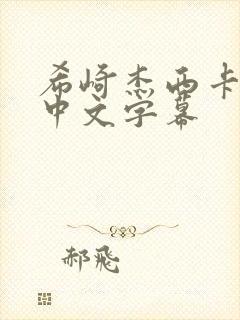 希崎杰西卡
中文字幕
郝飛